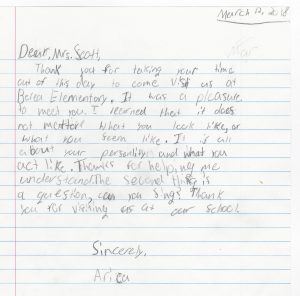 March 12, 2018
Mar
Dear, Mrs. Scott,
Thank you for taking your time
out of this day to come visit us at
Elementary. It was a pleasure
to meet you. I learned that it does
not matter what you look like, or
what you seem like. It is all
about your personality and what you
act like. Thanks for helping me
understand. The second thing is
a question, can you sing? Thank
you for visiting us at our school.
Sincerely,